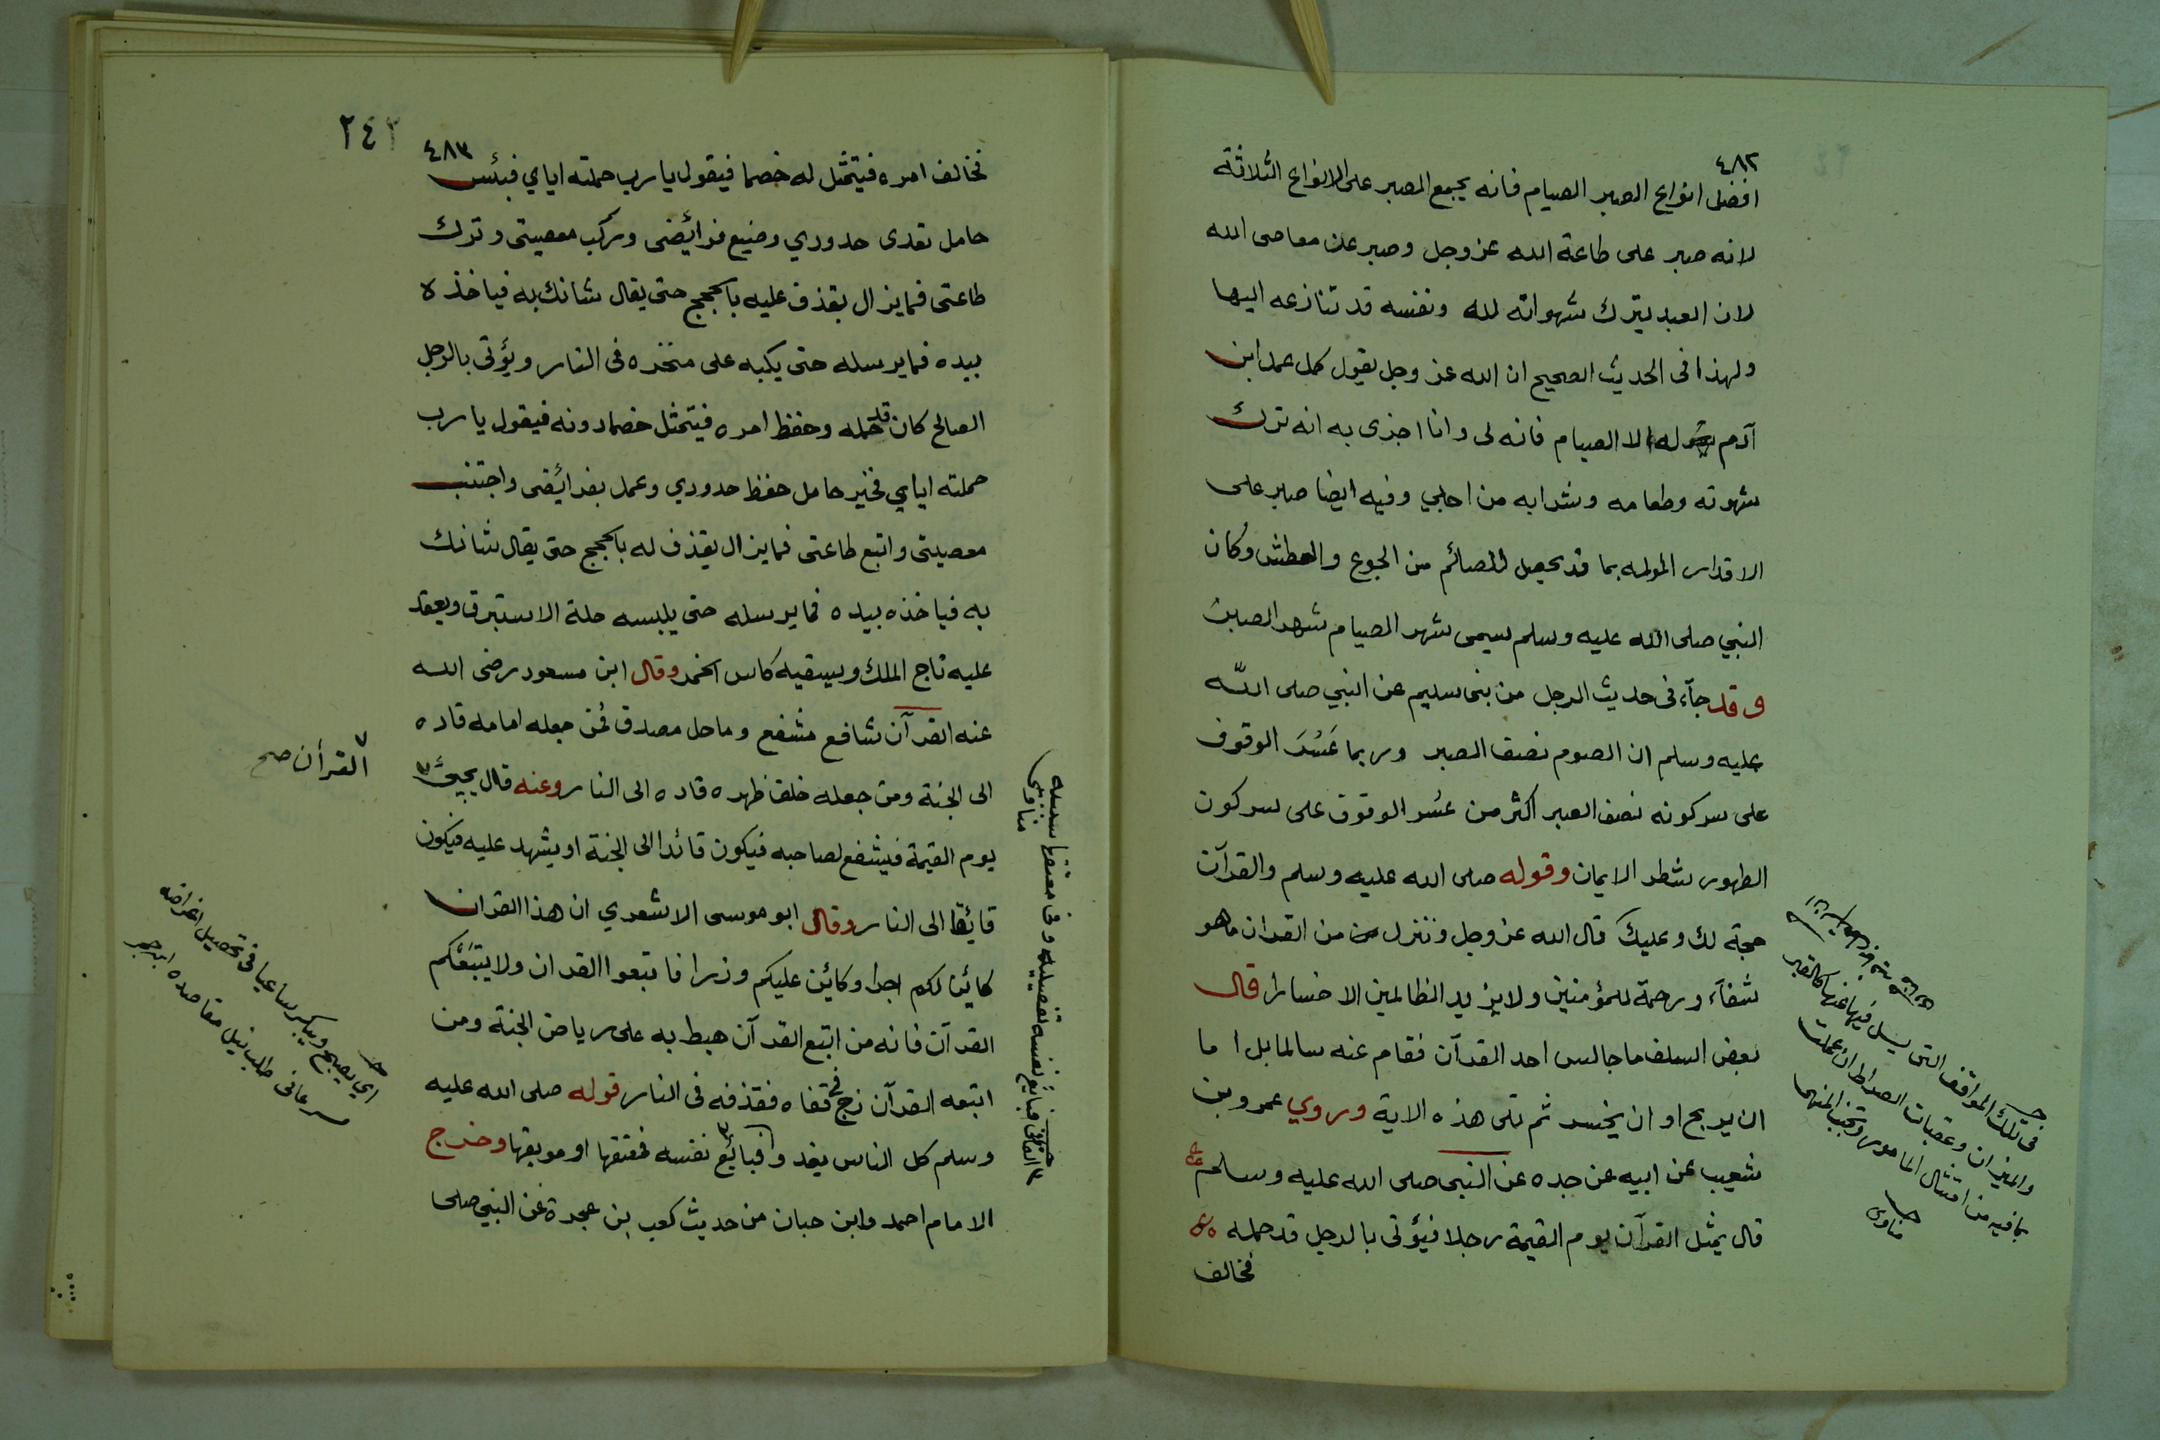 ٤٨٢
افضل انواع الصبر الصيام فانه يجمع الصبر على الانواع الثلاثة
لانه صبر على طاعة الله عز وجل وصبر عن معاصى الله
لان العبد يترك شهواته لله ونفسه قد تنازعه اليها
ولهذا فى الحديث الصحيح ان الله عز وجل يقول كل عمل ابن
آدم له الا الصيام فانه لى وانا اجزى به انه ترك
شهوته وطعامه وشرابه من اجلي وفيه ايضا صبر على
الاقدار المولمه بما قد يحصل للصائم من الجوع والعطش وكان
النبي صلى الله عليه وسلم يسمى شهر الصيام شهر الصبر
وقد جآء فى حديث الرجل من بنى سليم عن النبي صلى الله
عليه وسلم ان الصوم نصف الصبر وربما عَسُرَ الوقوف
على سر كونه نصف الصبر اكثر من عسر الوقوف على سر كون
الطهور شطر الايمان وقوله صلى الله عليه وسلم والقرآن
حجة لك وعليك قال الله عز وجل وننزل من القران ما هو
شفآء ورحمة للمؤمنين ولا يزيد الظالمين الا خسارا قال
بعض السلف ما جالس احد القرآن فقام عنه سالما بل اما
ان يربح او ان يخسر ثم تلى هذه الاية وروي عمرو بن
شعيب عن ابيه عن جده عن النبى صلى الله عليه وسلم
قال يمثل القرآن يوم القيمة رجلا فيؤتى بالرجل قد حمله
فخالف
فى تلك المواقف التى يسئل فيها عنها كالقبر
والميزان وعقبات الصراط ان عملت
بما فيه من امتثال المامور وتجنب المنهى
مناوى
٢٤٢
٤٨٣
فخالف امره فيتمثل له خصما فيقول يا رب حملته اياي فبئس
حامل تعدى حدوري وضيع فرائضى وركب معصيتى وترك
طاعتى فما يزال يقذف عليه بالحجج حتى يقال شانك به فياخذه
بيده فما يرسله حتى يكبه على منخره فى النار ويؤتى بالرجل
الصالح كان قد حمله وحفظ امره فيتمثل خصما دونه فيقول يا رب
حملته اياي فخير حامل حفظ حدودي وعمل بفرائضى واجتنب
معصيتى واتبع طاعتى فما يزال يقذف له بالحجج حتى يقال شانك
به فياخذه بيده فما يرسله حتى يلبسه حلة الاستبرق ويعقد
عليه تاج الملك ويسقيه كاس الخمر وقال ابن مسعود رضى الله
عنه القرآن شافع مشفع وماحل مصدق فمن جعله امامه قاده
الى الجنة ومن جعله خلف ظهره قاده الى النار وعنه قال يجيئ
يوم القيمة فيشفع لصاحبه فيكون قائدا الى الجنة او يشهد عليه فيكون
قائدا الى النار وقال ابو موسى الاشعري ان هذا القران
كائن لكم اجرا وكائن عليكم وزرا فاتبعوا القران ولا يتبعكم
القرآن فانه من اتبع القرآن هبط به على رياض الجنة ومن
اتبعه القرآن زج فى قفاه فقذفه فى النار قوله صلى الله عليه
وسلم كل الناس يغدوا فبائع نفسه فمعتقها او موبقها وخرج
الامام احمد وابن حبان من حديث كعب بن عجرة عن النبي صلى
القرأن صح
اي يصبح ويبكر ساعيا فى تحصيل اغراضه
مسرعا فى طلب نيل مقاصده ابن حجر
الفا فى فبائع نفسه تفصيليه وفى معتقها سببيه
مناوى